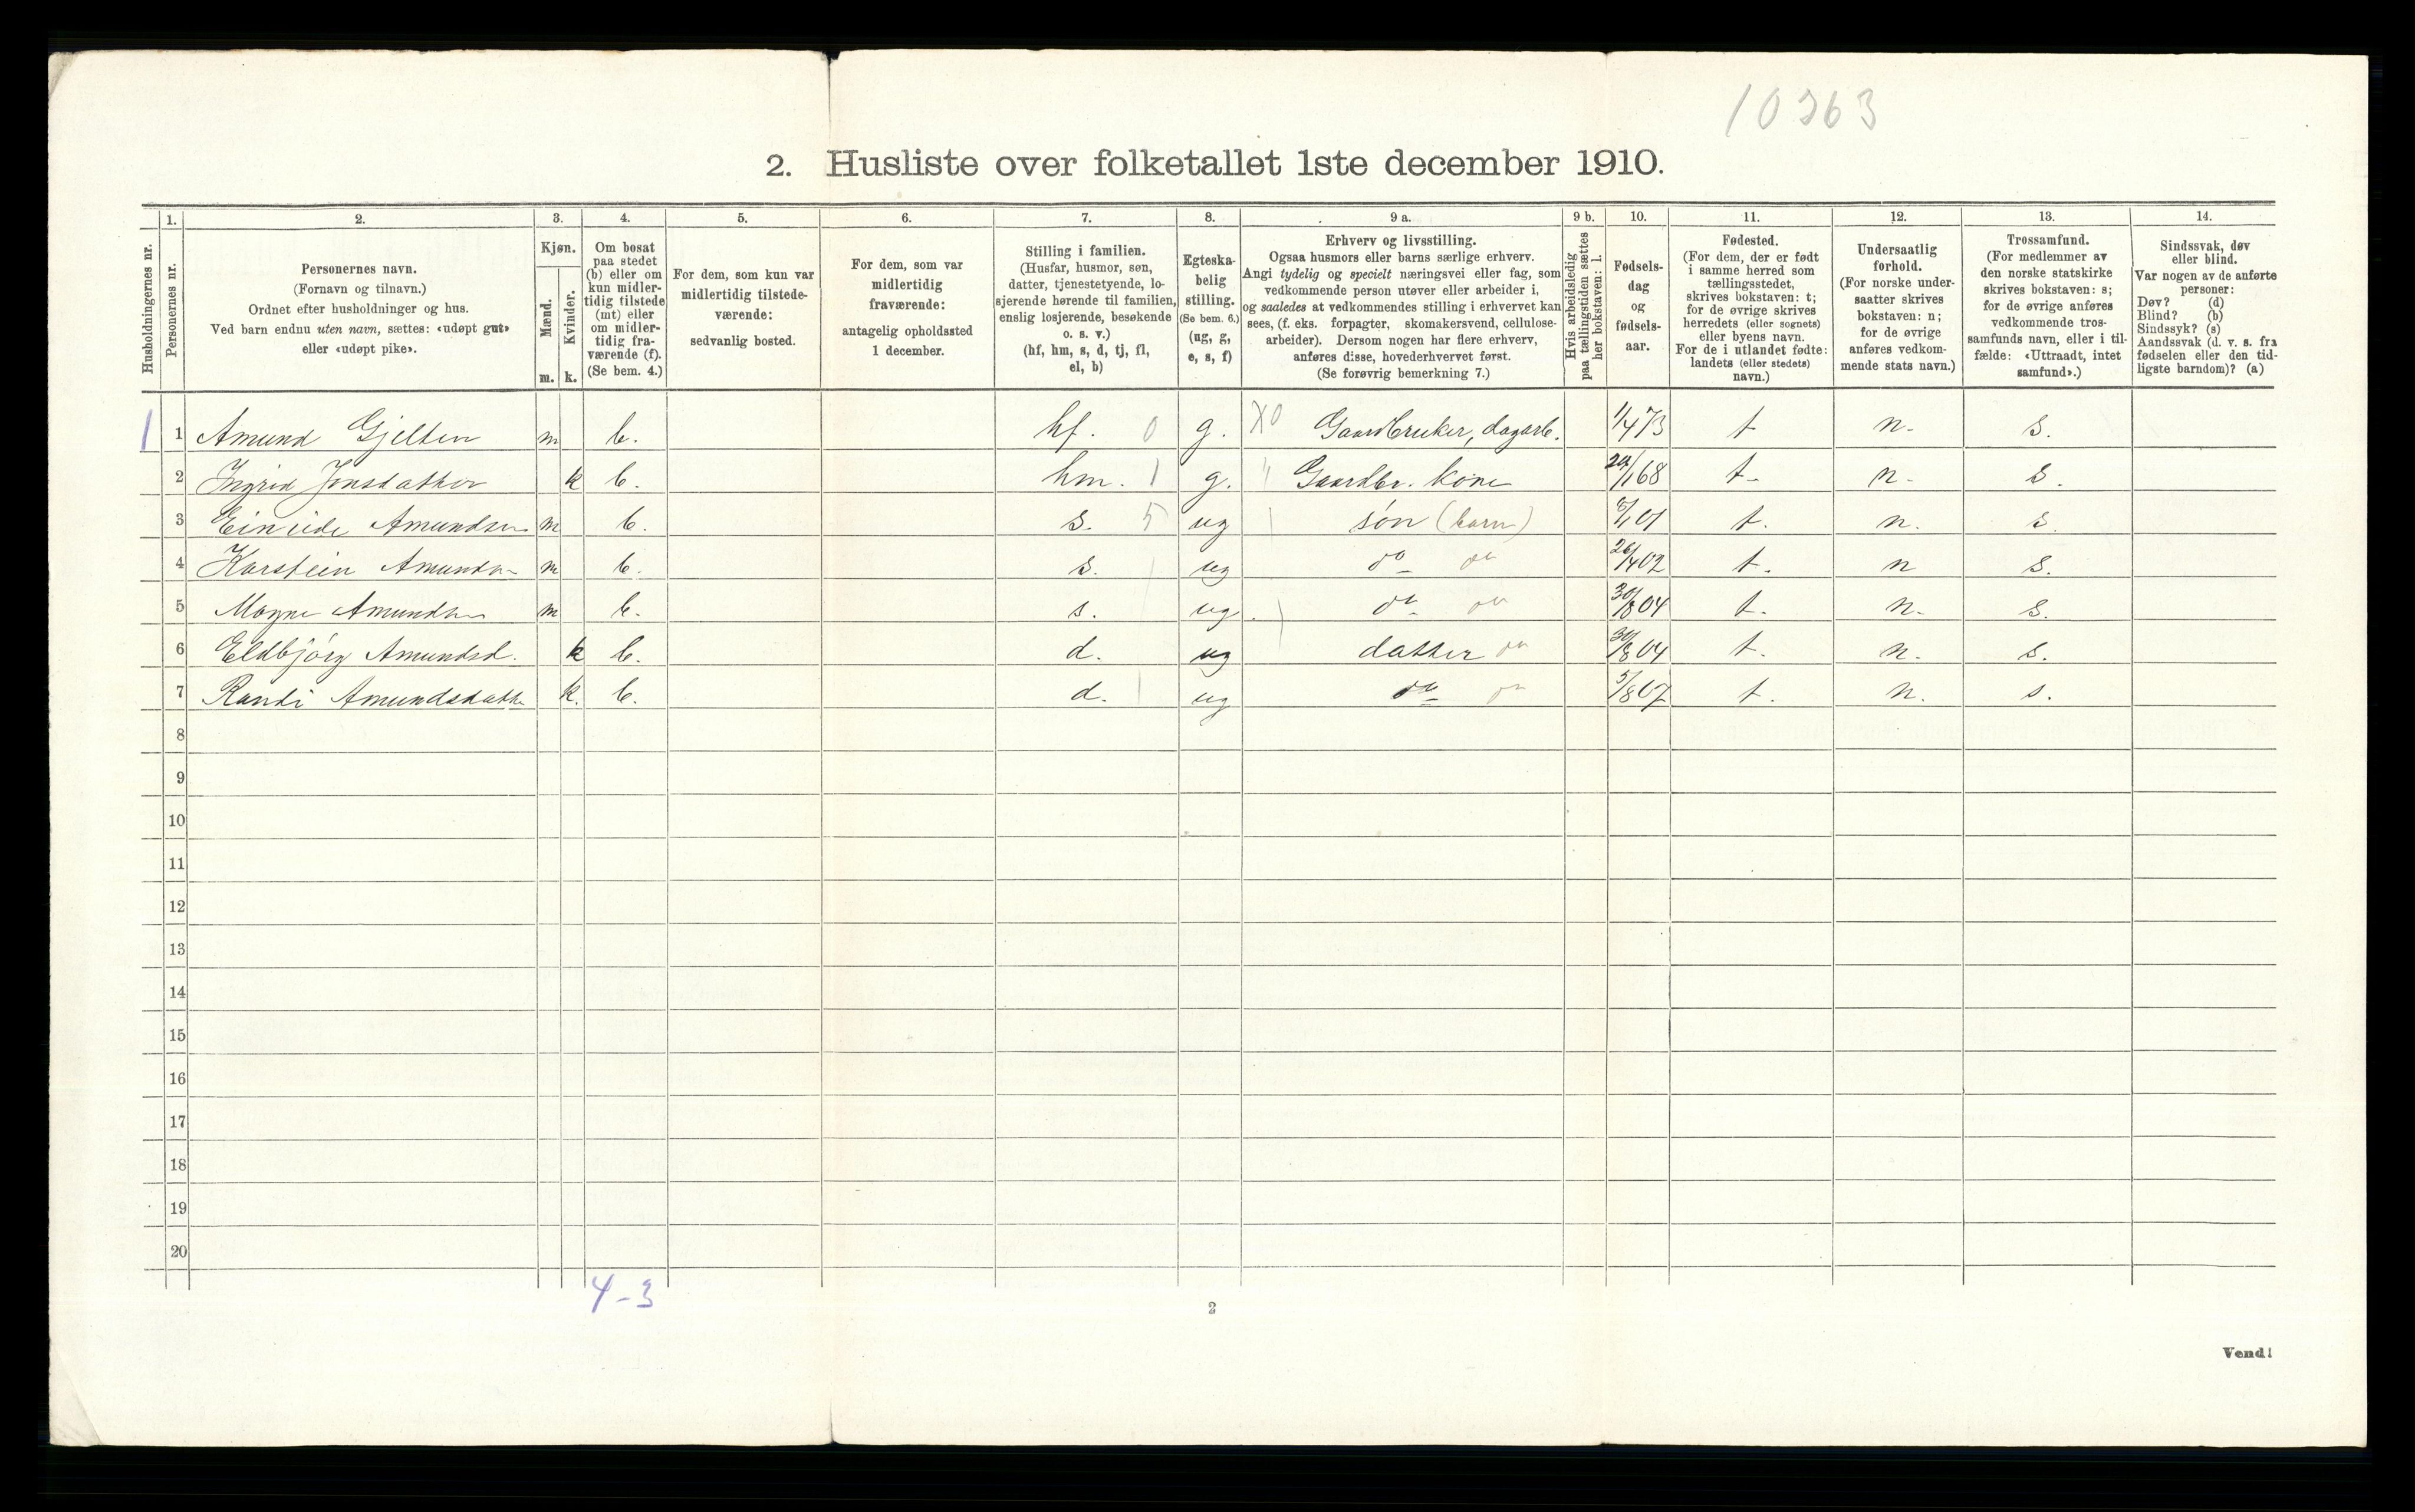 10263
2. Husliste over folketallet 1ste december 1910.
1. 2. 3. 4. 5. 6. 7. 8. 9 a. 9 b. 10. 11. 12. 13. 14.
Husholdningernes nr.
Personernes nr.
Personernes navn.
(Fornavn og tilnavn.)
Ordnet efter husholdninger og hus.
Ved barn endnu uten navn, sættes: «udøpt gut»
eller «udøpt pike».
Kjøn.
Mænd.
Kvinder.
m. k.
Om bosat
paa stedet
(b) eller om
kun midler-
tidig tilstede
(mt) eller
om midler-
tidig fra-
værende (f).
(Se bem. 4.)
For dem, som kun var
midlertidig tilstede-
værende:
sedvanlig bosted.
For dem, som var
midlertidig
fraværende:
antagelig opholdssted
1 december.
Stilling i familien.
(Husfar, husmor, søn,
datter, tjenestetyende, lo-
sjerende hørende til familien,
enslig losjerende, besøkende
o. s. v.)
(hf, hm, s, d, tj, fl,
el, b)
Egteska-
belig
stilling.
(Se bem. 6.)
(ug, g,
e, s, f)
Erhverv og livsstilling.
Ogsaa husmors eller barns særlige erhverv.
Angi tydelig og specielt næringsvei eller fag, som
vedkommende person utøver eller arbeider i,
og saaledes at vedkommendes stilling i erhvervet kan
sees, (f. eks. forpagter, skomakersvend, cellulose-
arbeider). Dersom nogen har flere erhverv,
anføres disse, hovederhvervet først.
(Se forøvrig bemerkning 7.)
Hvis arbeidsledig
paa tællingstiden sættes
her bokstaven: l.
Fødsels-
dag
og
fødsels-
aar.
Fødested.
(For dem, der er født
i samme herred som
tællingsstedet,
skrives bokstaven: t;
for de øvrige skrives
herredets (eller sognets)
eller byens navn.
For de i utlandet fødte:
landets (eller stedets)
navn.)
Undersaatlig
forhold.
(For norske under-
saatter skrives
bokstaven: n;
for de øvrige
anføres vedkom-
mende stats navn.)
Trossamfund.
(For medlemmer av
den norske statskirke
skrives bokstaven: s;
for de øvrige anføres
vedkommende tros-
samfunds navn, eller i til-
fælde: «Uttraadt, intet
samfund».)
Sindssvak, døv
eller blind.
Var nogen av de anførte
personer:
Døv? (d)
Blind? (b)
Sindssyk? (s)
Aandssvak (d. v. s. fra
fødselen eller den tid-
ligste barndom)? (a)
1 1 Amund Gjelten m b. hf. 0 g. X0 Gaardbruker, dagarb. 1/4 73 t n. s.
2 Ingrid Jonsdatter k b. hm. 1 g. " Gaardbr. kone 29/1 68 t. n. s.
3 Einride Amundsen m b. s. 5 ug søn (barn) 8/1 01 t. n. s.
4 Karstein Amunds m b. s. ug do do 26/4 02 t. n s.
5 Magne Amundsen m b. s. ug. do do 30/8 04 t. n. s.
6 Eldbjörg Amundsd. k b. d. ug datter do 30/8 04 t. n. s.
7 Randi Amundsdatt k. b. d. ug do do 5/8 07 t. n. s.
8
9
10
11
12
13
14
15
16
17
18
19
20
4-3
2
Vend!